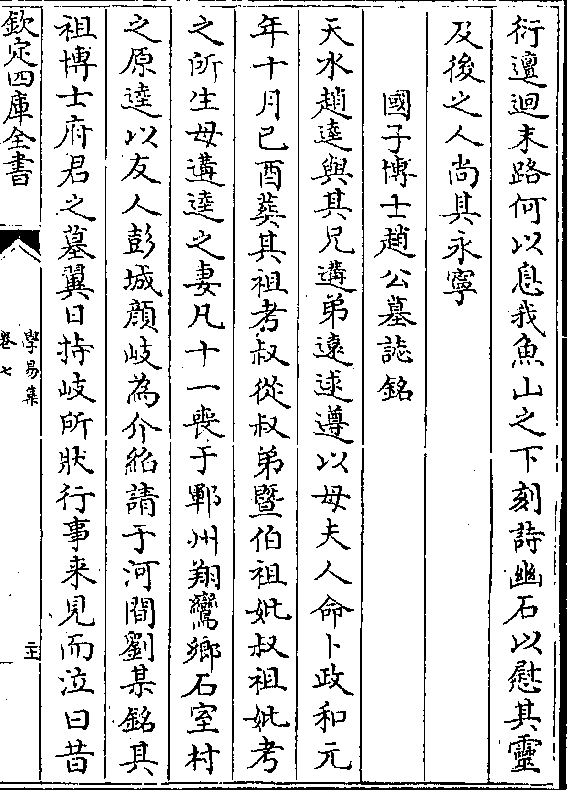 衍邅迴末路何以息我魚山之下刻詩幽石以慰其靈
及後之人尚其永寧
國子博士趙公墓誌銘
天水趙逵與其兄遘弟遠逑遵以母夫人命卜政和元
年十月己酉葬其祖考叔從叔弟暨伯祖妣叔祖妣考
之所生母遘逵之妻凡十一喪于鄆州翔鸞鄉石室村
之原逵以友人彭城顔岐為介紹請于河間劉某銘其
祖博士府君之墓翼日持岐所狀行事来見而泣曰昔
欽定四庫全書
學易集
卷七